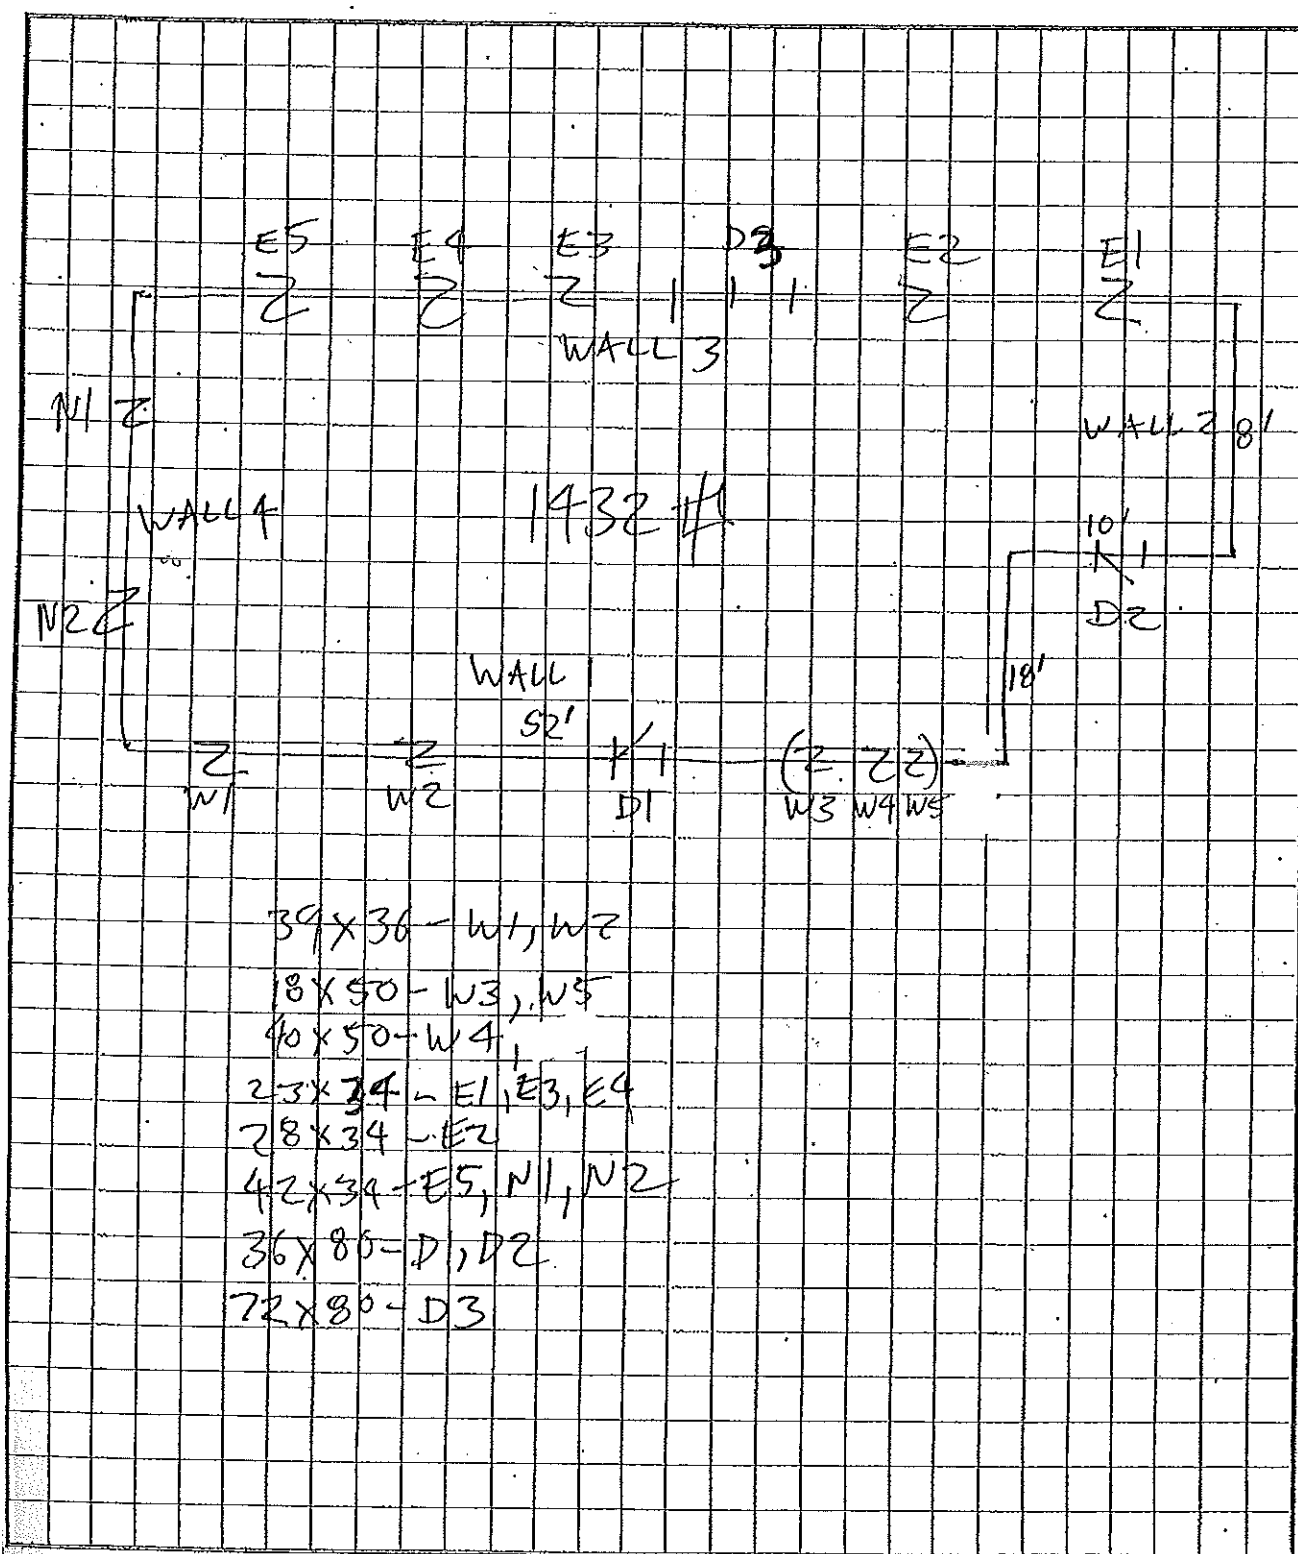 E5 E4 E3 D3 E2 E1
WALL 3
N1
WALL 2 8'
WALL 4
1432 #
10'
N2
D2
WALL 1
18'
52'
W1 W2 D1 W3 W4 W5
39x36 - W1, W2
18x50 - W3, W5
40x50 - W4
23x34 - E1, E3, E4
28x34 - E2
42x34 - E5, N1, N2
36x80 - D1, D2
72x80 - D3